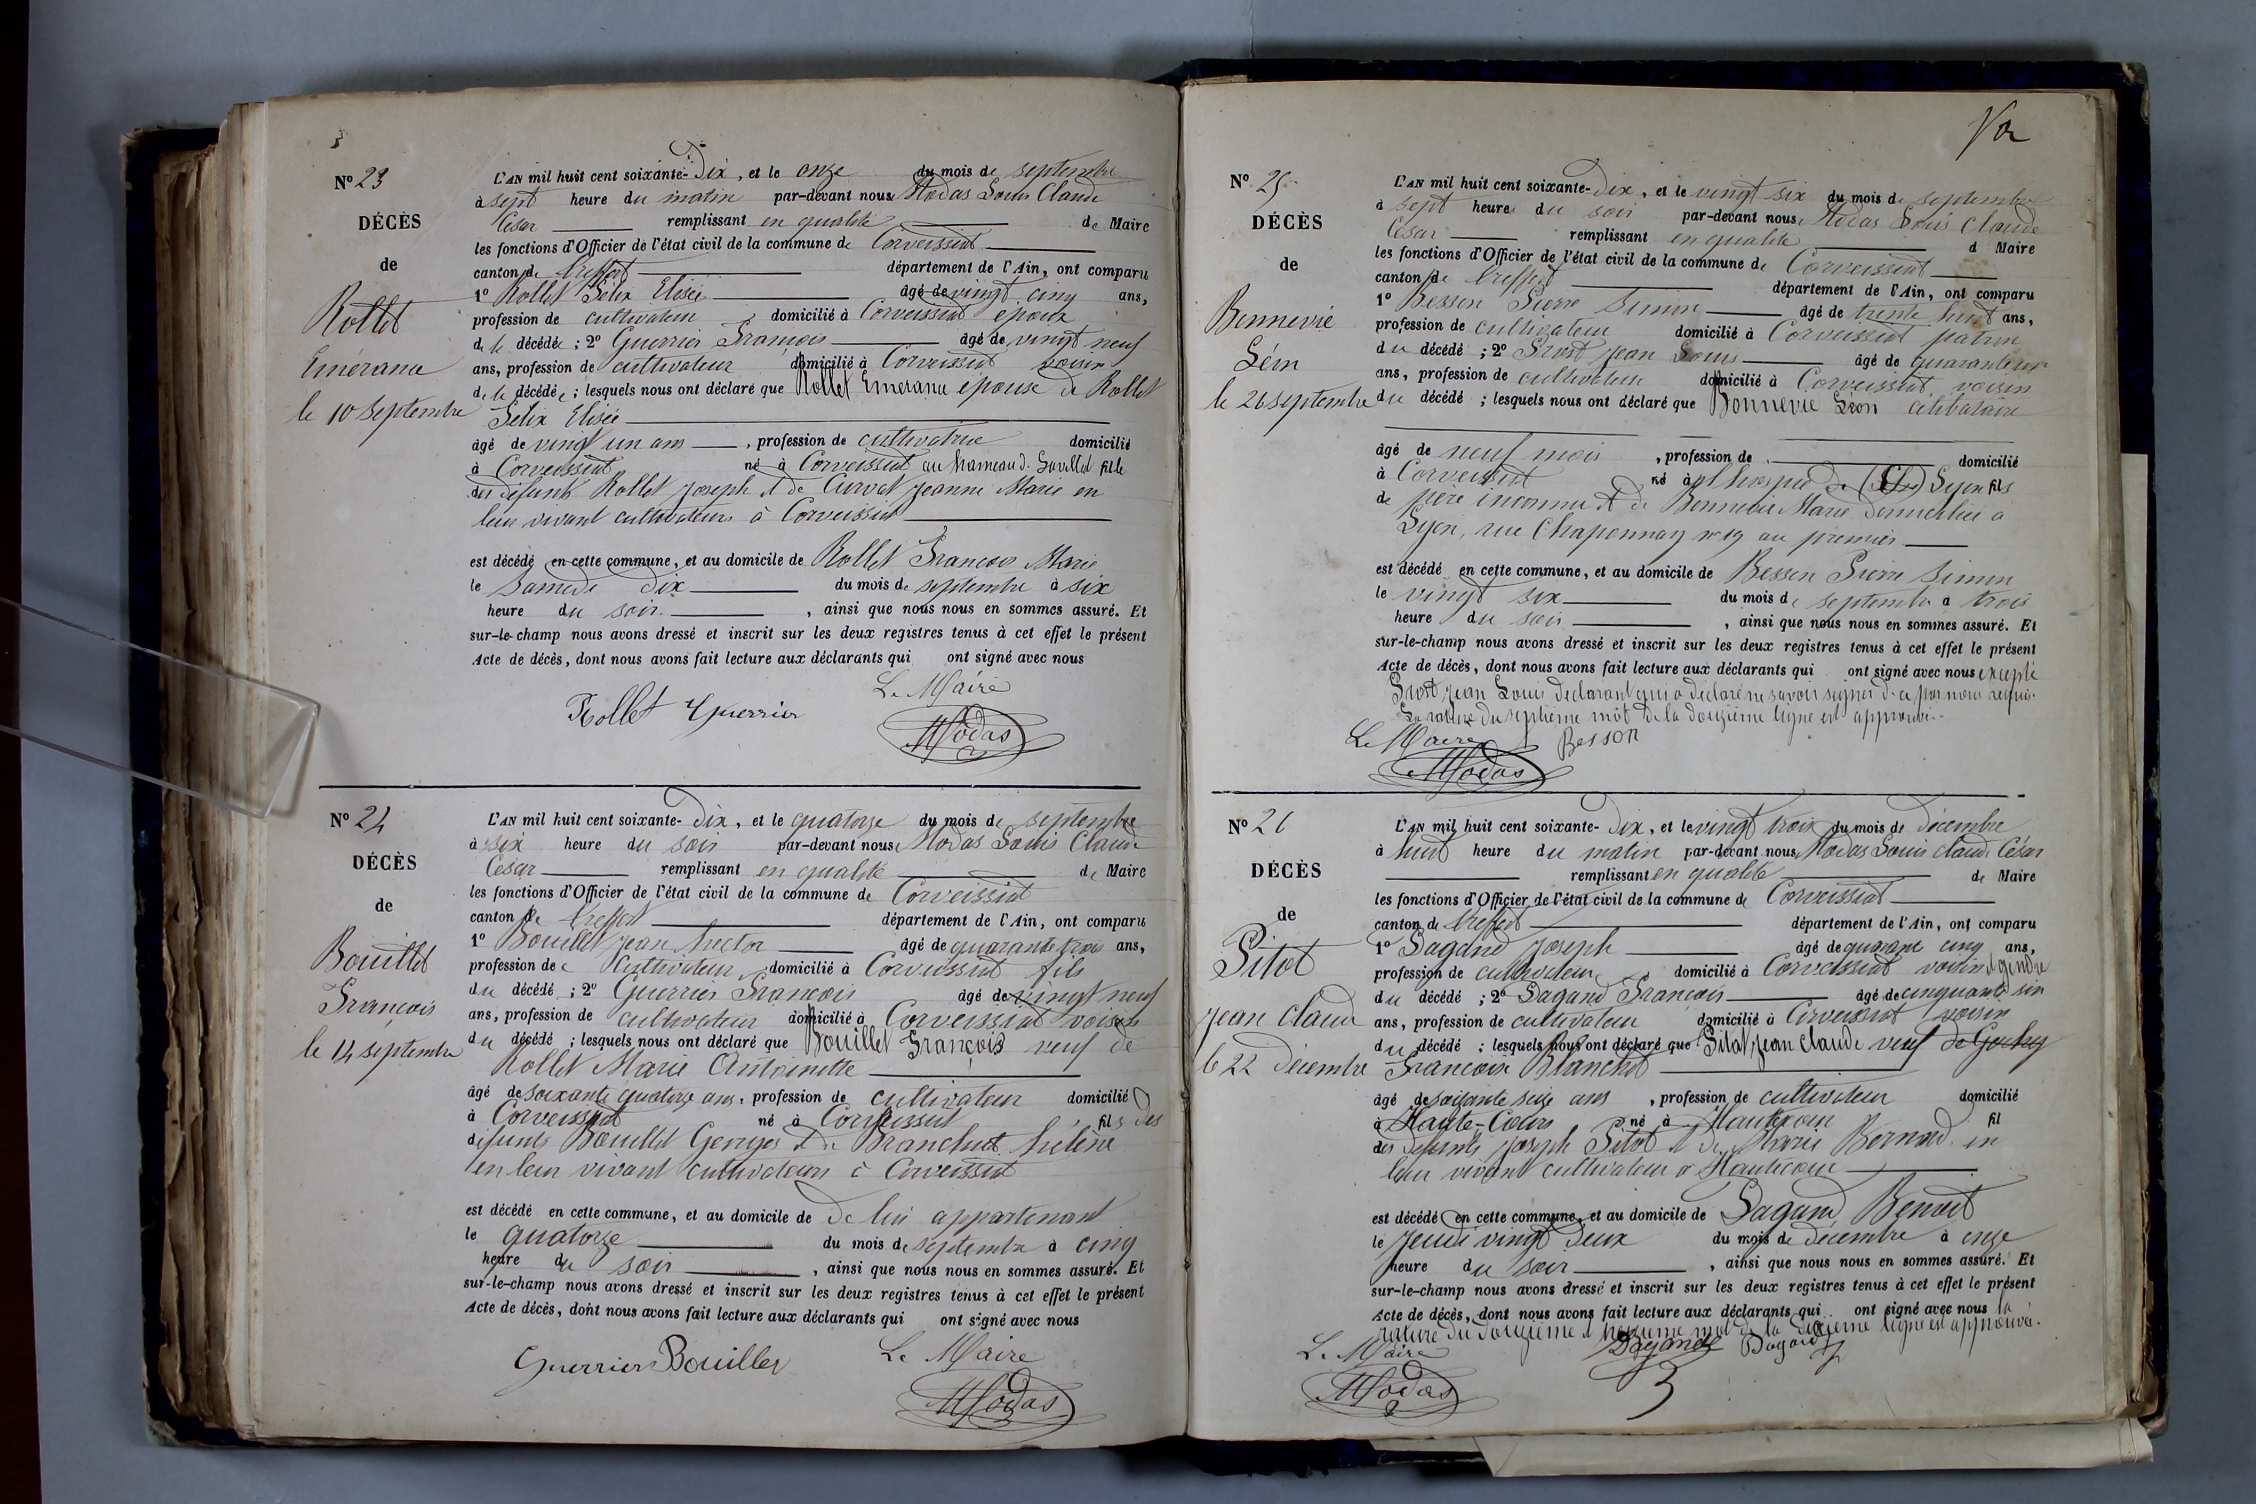 Nº 23
DÉCÈS
de
Rollet
Emérance
le 10 septembre
L'AN mil huit cent soixante-Dix, et le onze du mois de septembre
à sept heure du matin par-devant nous Modas Louis Claude
César remplissant en qualité de Maire
les fonctions d'Officier de l'état civil de la commune de Corveissiat
canton de Treffort département de l'Ain, ont comparu
1º Rollet Félix Elisée âgé de vingt cinq ans,
profession de cultivateur domicilié à Corveissiat époux
de la décédée ; 2º Guerrier François âgé de vingt neuf
ans, profession de cultivateur domicilié à Corveissiat voisin
de la décédée ; lesquels nous ont déclaré que Rollet Emerance épouse de Rollet
Félix Elisée
âgé de vingt un ans, profession de cultivatrice domicilié
à Corveissiat né à Corveissiat au hameau de fille
des défunts Rollet Joseph et de Curvat Jeanne Marie en
leur vivant cultivateurs à Corveissiat
est décédé en cette commune, et au domicile de Rollet François Marie
le Samedi dix du mois de septembre à six
heure du soir, ainsi que nous nous en sommes assuré. Et
sur-le-champ nous avons dressé et inscrit sur les deux registres tenus à cet effet le présent
Acte de décès, dont nous avons fait lecture aux déclarants qui ont signé avec nous
Le Maire
Rollet Guerrier
Modas
Nº 24
DÉCÈS
de
Bouillet
François
le 14 septembre
L'AN mil huit cent soixante-Dix, et le quatorze du mois de septembre
à six heure du soir par-devant nous Modas Louis Claude
César remplissant en qualité de Maire
les fonctions d'Officier de l'état civil de la commune de Corveissiat
canton de Treffort département de l'Ain, ont comparu
1º Bouillet Jean hector âgé de quarante trois ans,
profession de cultivateur domicilié à Corveissiat fils
du décédé ; 2º Guerrier François âgé de vingt neuf
ans, profession de cultivateur domicilié à Corveissiat voisin
du décédé ; lesquels nous ont déclaré que Bouillet François veuf de
Rollet Marie Antoinette
âgé de soixante quatorze ans, profession de cultivateur domicilié
à Corveissiat né à Corveissiat fils des
défunts Bouillet Georges et de Branchut hélène
en leur vivant cultivateurs à Corveissiat
est décédé en cette commune, et au domicile de de lui appartenant
le quatorze du mois de septembre à cinq
heure du soir, ainsi que nous nous en sommes assuré. Et
sur-le-champ nous avons dressé et inscrit sur les deux registres tenus à cet effet le présent
Acte de décès, dont nous avons fait lecture aux déclarants qui ont signé avec nous
Guerrier Bouillet
Le Maire
Modas
Nº 25
DÉCÈS
de
Bonnevie
Léon
le 26 septembre
L'AN mil huit cent soixante-Dix, et le vingt six du mois de septembre
à sept heure du soir par-devant nous Modas Louis Claude
César remplissant en qualité d Maire
les fonctions d'Officier de l'état civil de la commune de Corveissiat
canton de Treffort département de l'Ain, ont comparu
1º Besson Pierre Simon âgé de trente huit ans,
profession de cultivateur domicilié à Corveissiat patron
du décédé ; 2º Prost Jean Louis âgé de quarante un
ans, profession de cultivateur domicilié à Corveissiat voisin
du décédé ; lesquels nous ont déclaré que Bonnevie Léon célibataire
âgé de neuf mois, profession de domicilié
à Corveissiat né à l'hospice de Lyon fils
de père inconnu et de Bonnevie Marie domiciliée à
Lyon, rue Chaponnay nº 19 au premier
est décédé en cette commune, et au domicile de Besson Pierre Simon
le vingt six du mois de septembre à trois
heure du soir, ainsi que nous nous en sommes assuré. Et
sur-le-champ nous avons dressé et inscrit sur les deux registres tenus à cet effet le présent
Acte de décès, dont nous avons fait lecture aux déclarants qui ont signé avec nous excepté
Prost Jean Louis déclarant qui a déclaré ne savoir signer de ce par nous requis.
La rature du septième mot de la douzième ligne est approuvée.
Le Maire Besson
Modas
Nº 26
DÉCÈS
de
Pitot
Jean Claude
le 22 décembre
L'AN mil huit cent soixante-Dix, et le vingt trois du mois de décembre
à huit heure du matin par-devant nous Modas Louis Claude César
remplissant en qualité de Maire
les fonctions d'Officier de l'état civil de la commune de Corveissiat
canton de Treffort département de l'Ain, ont comparu
1º Dagand Joseph âgé de quarante cinq ans,
profession de cultivateur domicilié à Corveissiat voisin et gendre
du décédé ; 2º Dagand François âgé de cinquante six
ans, profession de cultivateur domicilié à Corveissiat voisin
du décédé ; lesquels nous ont déclaré que Pitot Jean Claude veuf de
Françoise Blanchet
âgé de soixante seize ans, profession de cultivateur domicilié
à Haute-Cour né à Hautecour fil
des défunts Joseph Pitot et de Marie Bernard en
leur vivant cultivateur à Hautecour
est décédé en cette commune, et au domicile de Dagand Benoit
le Jeudi vingt deux du mois de décembre à onze
heure du soir, ainsi que nous nous en sommes assuré. Et
sur-le-champ nous avons dressé et inscrit sur les deux registres tenus à cet effet le présent
Acte de décès, dont nous avons fait lecture aux déclarants qui ont signé avec nous la
rature du douzième et treizième mot de la dixième ligne est approuvé.
Le Maire Dagand Dagand
Modas